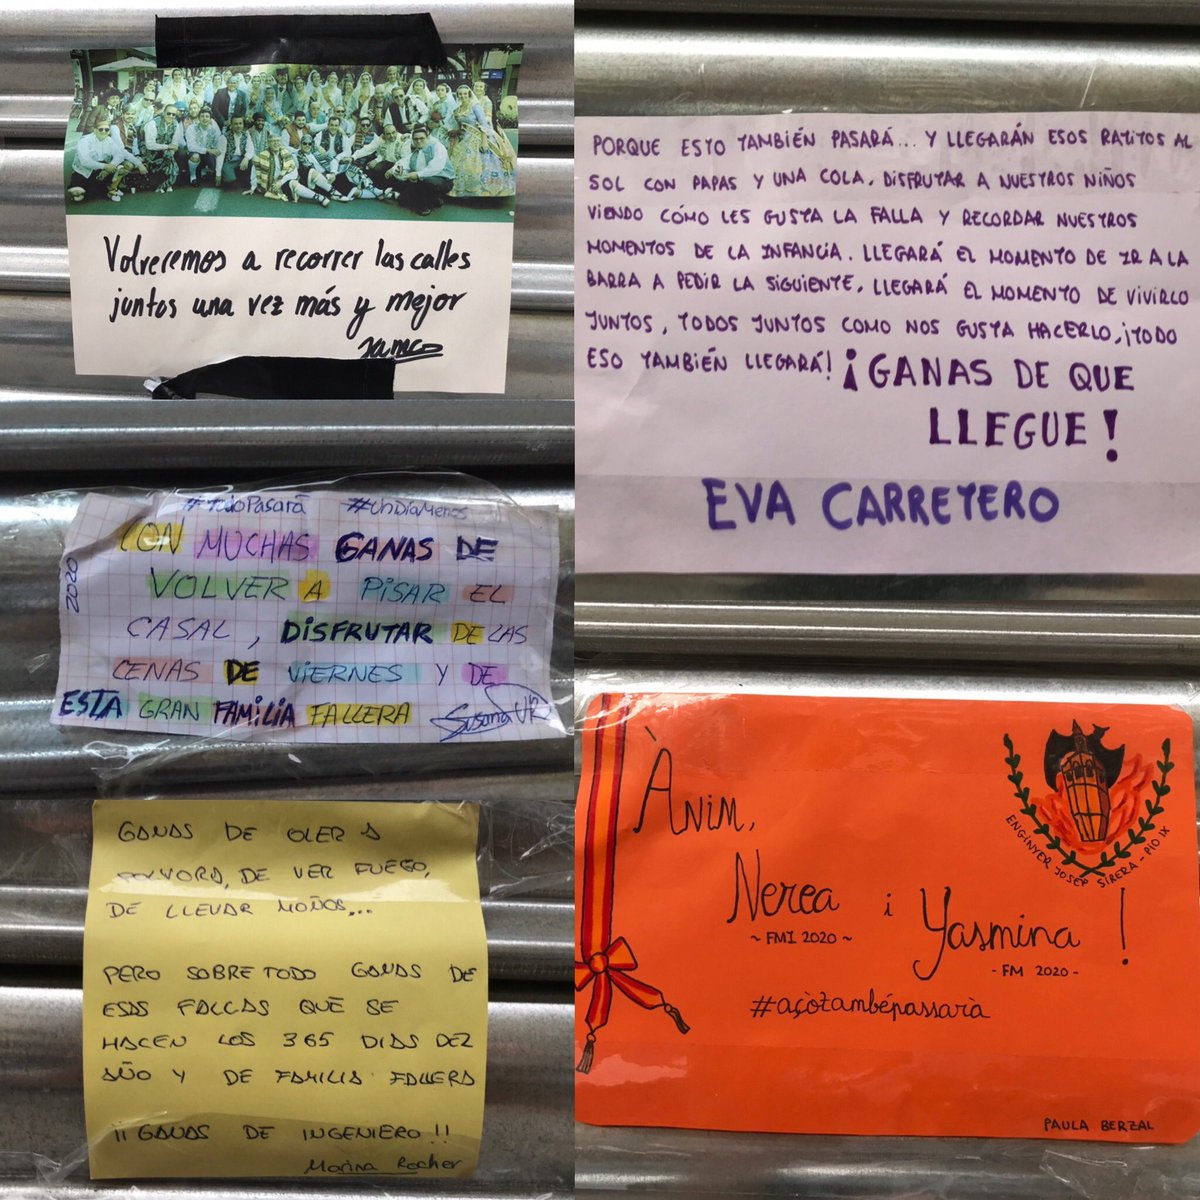 Volveremos a recorrer las calles
juntos una vez más y mejor
#TodoPasará #UnDíaMenos
2020
CON MUCHAS GANAS DE
VOLVER A PISAR EL
CASAL, DISFRUTAR DE LAS
CENAS DE VIERNES Y DE
ESTA GRAN FAMILIA FALLERA
Susana
GANAS DE OLER A
POLVORA, DE VER FUEGO,
DE LLEVAR MOÑOS,...
PERO SOBRE TODO GANAS DE
ESAS FALLAS QUE SE
HACEN LOS 365 DIAS DEL
AÑO Y DE FAMILIA FALLERA
¡¡GANAS DE INGENIERO!!
Marina Rocher
PORQUE ESTO TAMBIÉN PASARÁ... Y LLEGARÁN ESOS RATITOS AL
SOL CON PAPAS Y UNA COLA, DISFRUTAR A NUESTROS NIÑOS
VIENDO CÓMO LES GUSTA LA FALLA Y RECORDAR NUESTROS
MOMENTOS DE LA INFANCIA. LLEGARÁ EL MOMENTO DE IR A LA
BARRA A PEDIR LA SIGUIENTE, LLEGARÁ EL MOMENTO DE VIVIRLO
JUNTOS, TODOS JUNTOS COMO NOS GUSTA HACERLO, ¡TODO
ESO TAMBIÉN LLEGARÁ! ¡GANAS DE QUE
LLEGUE!
EVA CARRETERO
Ànim,
Nerea i Yasmina!
~ FMI 2020 ~
- FM 2020 -
#açòtambépassarà
ENGINYER JOSEP SIRERA - PIO IX
PAULA BERZAL